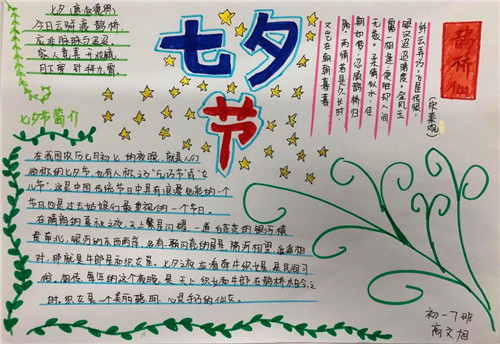 七夕
今日云骈渡鹊桥,
应非脉脉与迢迢
家人竞喜开妆镜
月下穿针拜九霄。
七夕节
鹊桥仙
(宋秦观)
纤云弄巧,飞星传恨,
银汉迢迢暗度。金风玉
露相逢,便胜却人间
无数。柔情似水,佳
期如梦,忍顾鹊桥归
路。两情若是久长时,
又岂在朝朝暮暮
七夕节简介
在我国农历七月初七的夜晚,就是人们
俗称的七夕节,也有人称之为"乞巧节"或"女
儿节"这是中国传统节日中具有浪漫色彩的一个
节日也是过去姑娘们最重视的一个节日。
在晴朗的夏秋之夜,天上繁星闪耀,一道白茫茫的银河横
贯南北,银河的东西两岸,各有一颗闪亮的星星,隔河相望,遥遥相
对,那就是牵牛星和织女星。七夕之夜
相传,每逢的这个夜晚,是天上织女和牛郎在鹊桥相会之
时。织女是一个美丽聪明,心灵手巧的仙女。
初一7班
高文旭